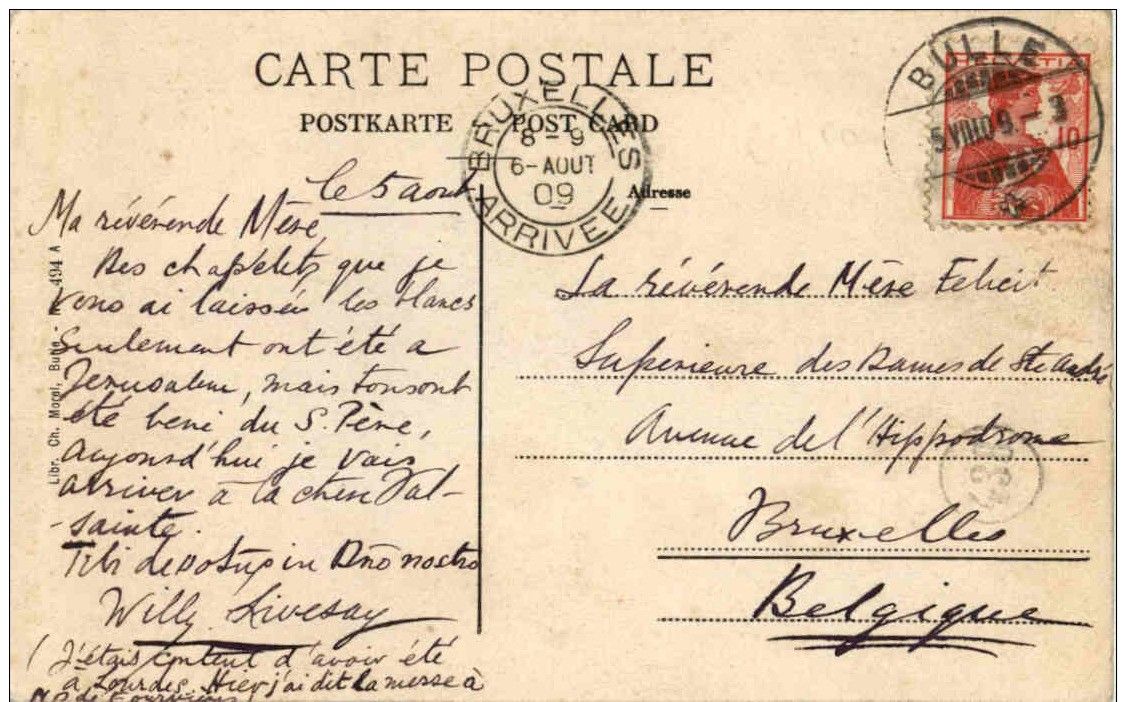 CARTE POSTALE
POSTKARTE POST CARD
BRUXELLES
8-9
6-AOUT
09
ARRIVEE
BULLE
5.VIII09.-3
HELVETIA
10
Adresse
le 5 aout
Ma révérende Mère
Des chapelets que je
vous ai laissés les blancs
seulement ont été a
Jerusalem, mais tous ont
été beni du S. Père,
Aujourd'hui je vais
arriver à la chere Val-
-sainte.
Tibi devotus in Dño nostro
Willy Livesay
(J'étais content d'avoir été
a Lourdes. Hier j'ai dit la messe à
N D de Fourvières
La révérende Mère Felicit
Superieure des Dames de Ste André
Avenue de l'Hippodrome
Bruxelles
Belgique
Libr. Ch. Morel, Bulle. 494 A